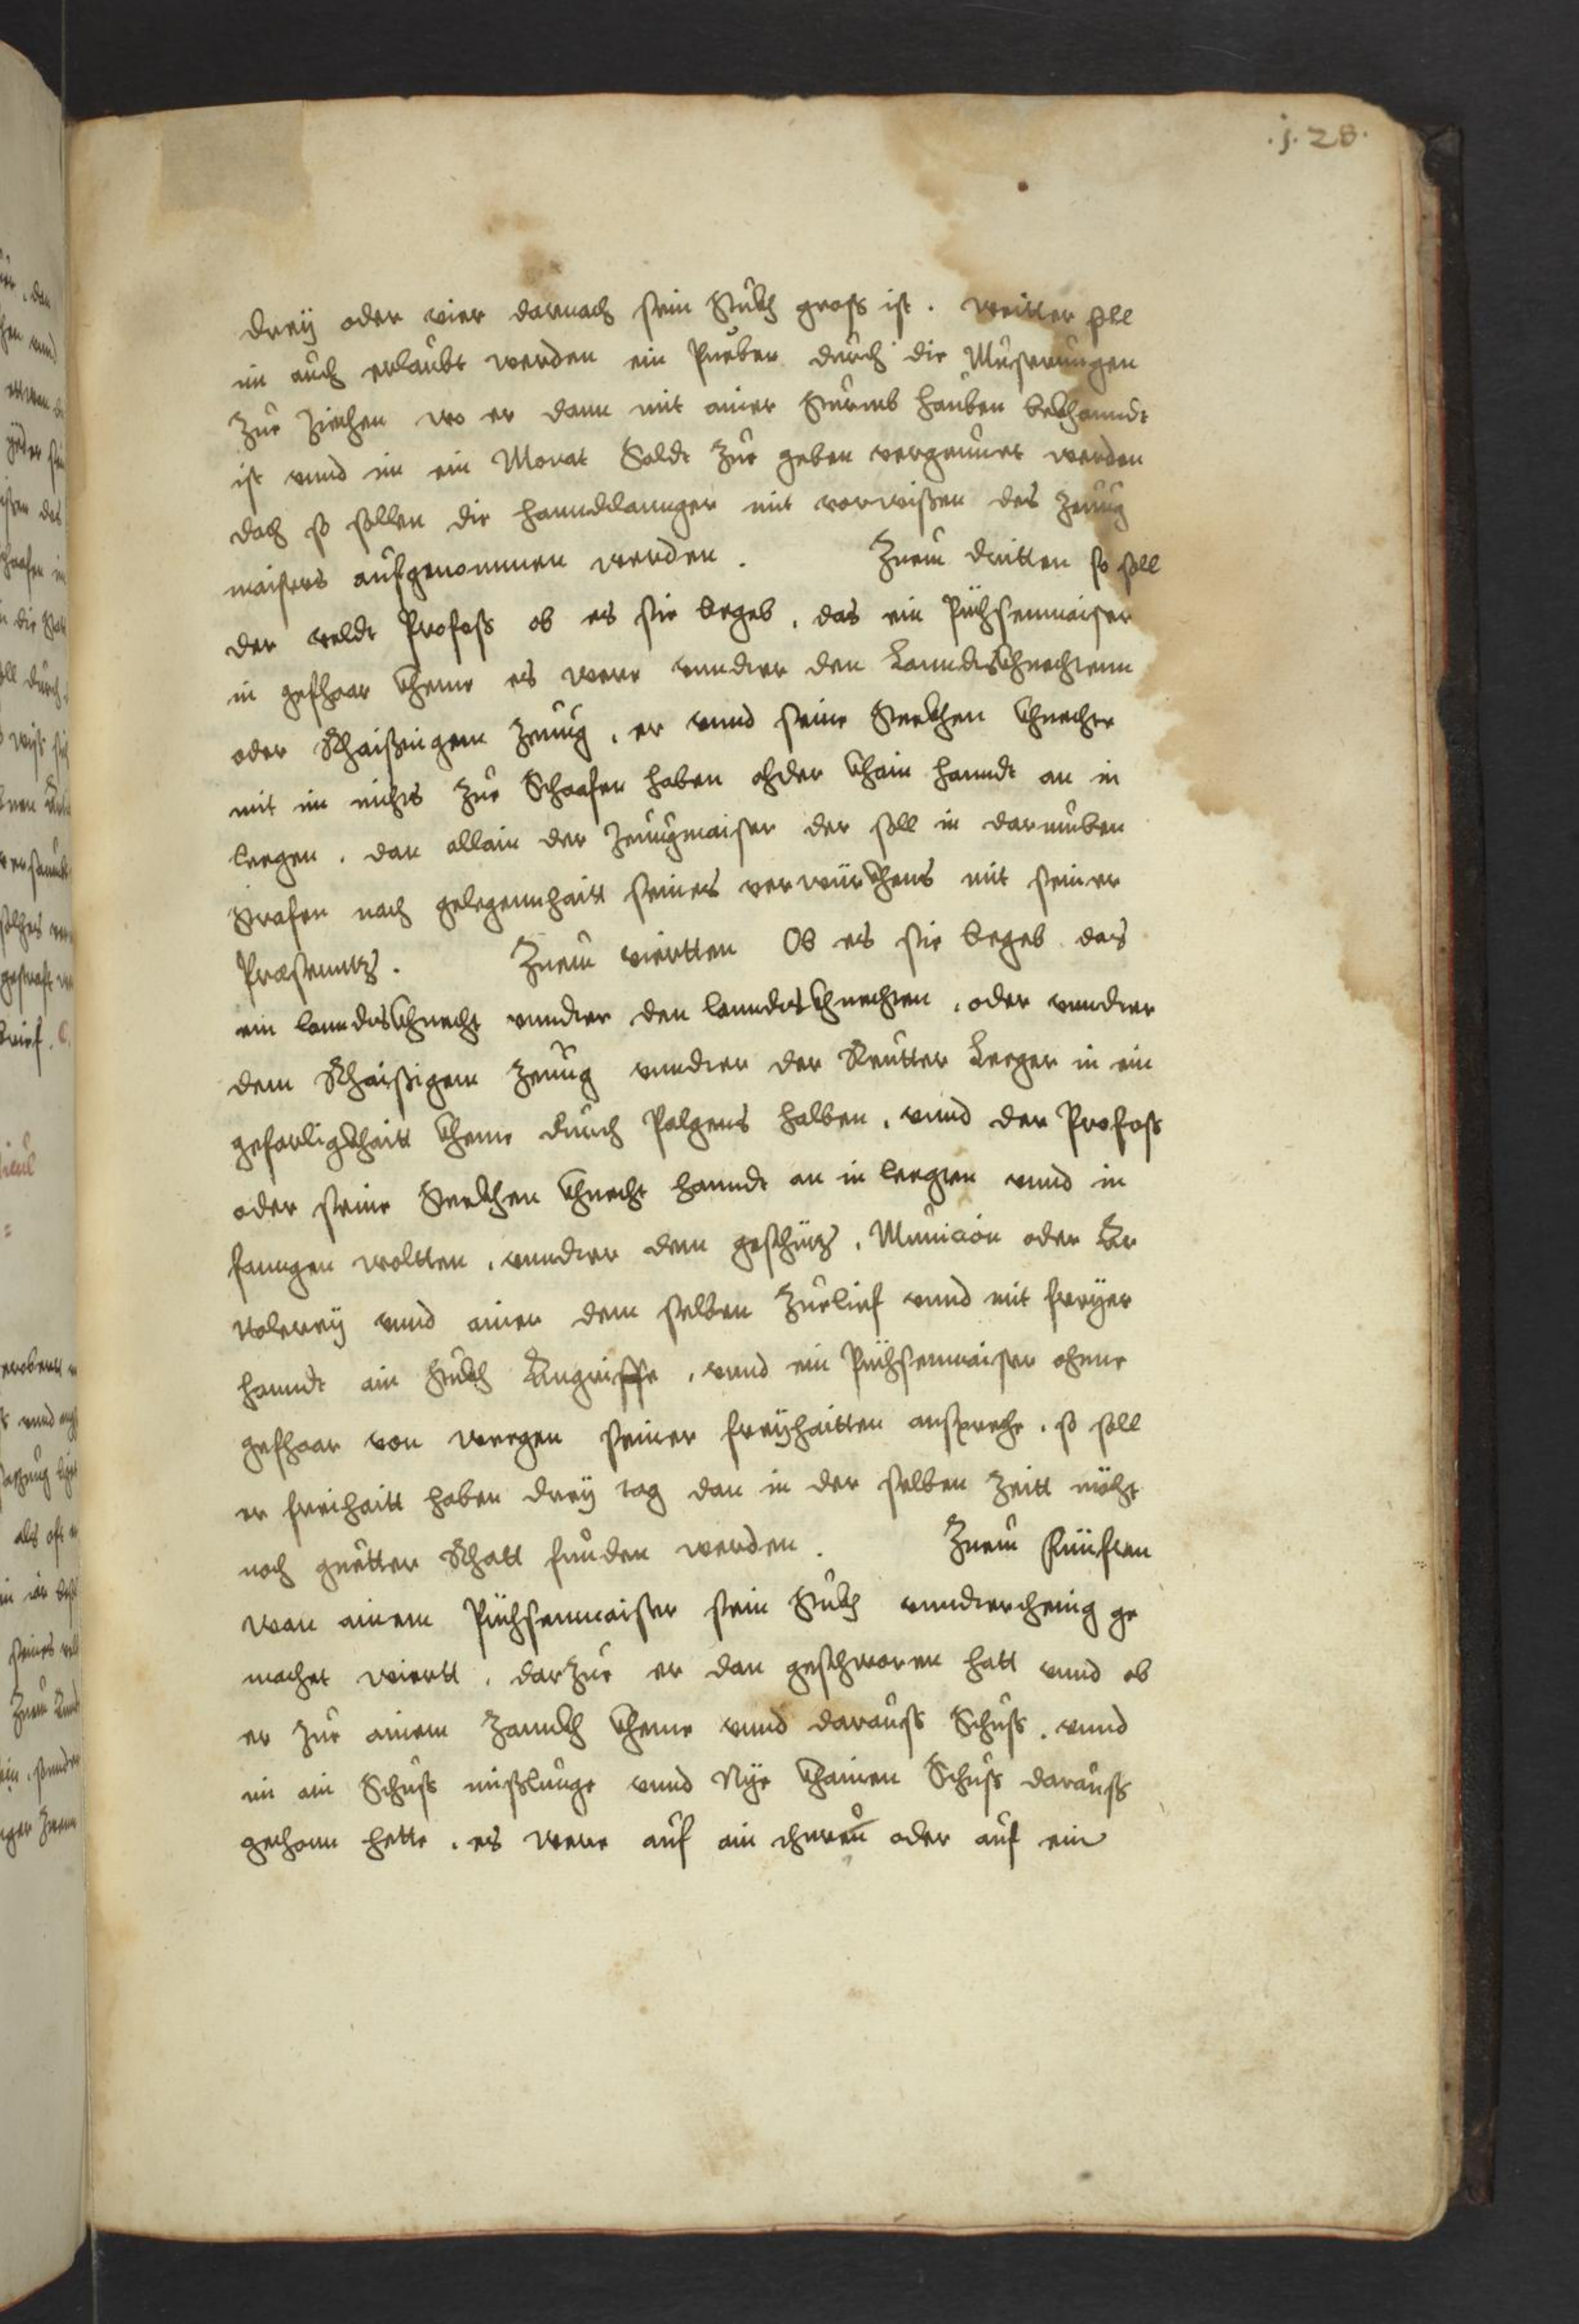 .j.28.
drey oder vier darnach sein Stükh gross ist. Weitter soll
im auch erlaubt werden ein Pueben durch die Musterungen
Zue Ziechen wo er dann mit ainer Sturmb hauben bekhanndt
ist vnnd im ein Monat Soldt Zue geben vergunnet werden
doch so sollen die hanndtlannger mit vorwissen des Zeüg
maisters aufgenommen werden. Zuem dritten so soll
der veldt Profoss ob es sie begeb, das ein Püchsenmaister
in gefhaar kheme es were vnnder den Lanndtskhnechtenn
oder Rhaissigem Zeüg, er vnnd seine Steckhen khnechte
mit im nichts Zue Schaafen haben ohder khain hanndt an in
leegen, dan allain der Zeügmaister der soll in darumben
Strafen nach gelegennhaitt seines verwürkhens mit seiner
Præsenntz. Zuem viertten Ob es sie begeb das
ein lanndtskhnecht vnnder den lanndtskhnechten, oder vnnder
dem Rhaissigem Zeüg vnnder der Reütter Leeger in ein
gefarligkhaitt kheme durch Palgens halben, vnnd der Profoss
oder seine Steckhen khnecht hanndt an in leegten vnnd in
fanngen woltten, vnnder dem geschütz, Municion oder Ar
tolerey vnnd ainer dem selben Zuelief vnnd mit freyer
hanndt ain Stükh Angriffe, vnnd ein Püchsenmaister ohnne
gefhaar von weegen seiner freyhaitten ansprech, so soll
er freihaitt haben drey tag dan in der selben Zeitt möcht
noch guetter Rhatt funden werden. Zuem Fünften
wan ainem Püchsenmaister sein Stükh vnnderchenig ge
machet wiertt, darzue er dan geschworen hatt vnnd ob
er Zue ainem Zannckh kheme vnnd darauss Schuss, vnnd
im ain Schuss misslunge vnnd Nye khainen Schuss darauss
gethonn hette, es were auf ain thuren oder auf ein